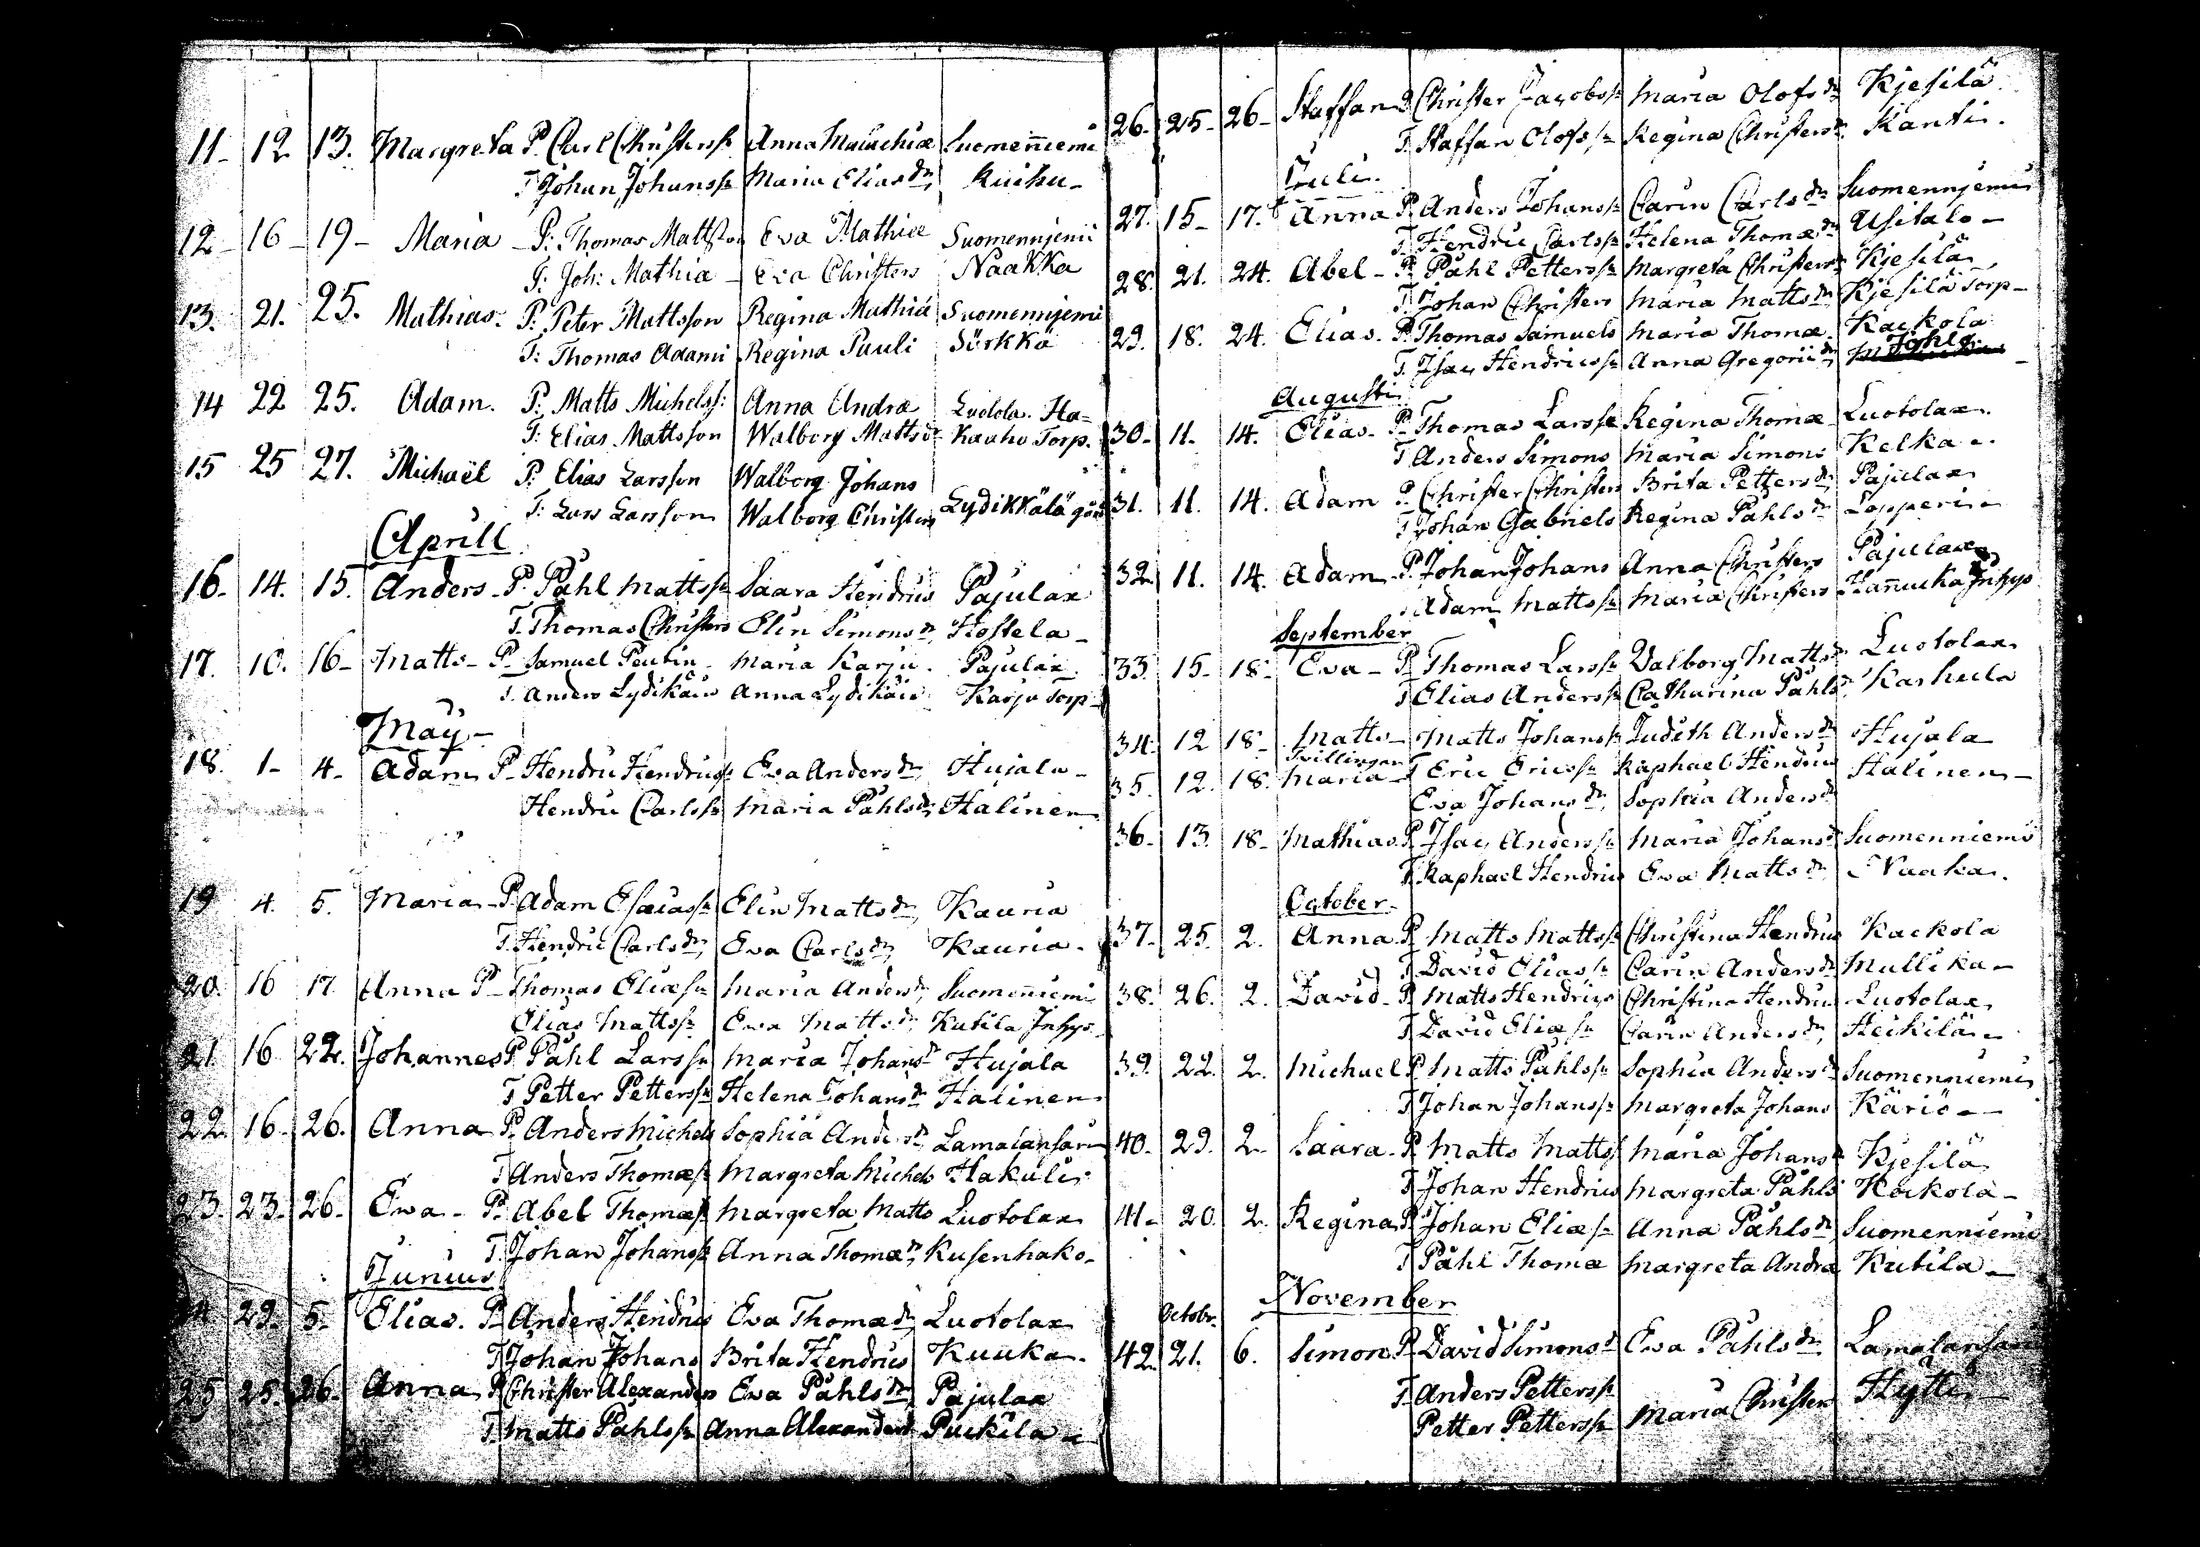 11. 12 13. Margreta P. Carl Christerss: Anna Mathiæ Suomenniemi
T. Johan Johanss: Maria Elias dr
12 16 19 Maria P: Thomas Mattsson Eva Mathiæ Suomennjemi
T: Joh: Mathiæ Eva Christers Naakka
13. 21. 25. Mathias. P: Peter Mattsson Regina Mathiæ Suomennjemi
T: Thomas Adami Regina Pauli Sörkkä
14 22 25. Adam. P: Matts Michelss: Anna Andræ Luotola. Ha-
T: Elias Mattsson Walborg Matts dr kaaho Torp.
15 25 27. Michaël P: Elias Larsson Walborg Johans
T: Lars Larsson Walborg Christers Lydikkälä
Aprill
16. 14. 15. Anders P. Påhl Mattss: Saara Hendrics Pajulax
T. Thomas Christers Elin Simons dr Hostela
17. 10. 16 Matts P. Samuel Pentin Maria Karju Pajulax
T. Anders Lydikäin Anna Lydikäin Karju Torp
May
18. 1. 4. Adam P. Hendric Hendricss: Eva Anders dr Hujala
Hendric Carlss: Maria Påhls dr Halinen
19 4. 5. Maria P. Adam Esaiass: Elin Matts dr Kauria
T. Hendric Carls dr Eva Carls dr Kauria.
20. 16 17 Anna P. Thomas Eliæ s: Maria Anders dr Suomenniemi
Elias Mattss: Eva Matts dr Kutila Inhys
21 16 22. Johannes P. Påhl Larss: Maria Johans dr Hujala
T Petter Petterss: Helena Johans dr Halinen
22. 16. 26. Anna P. Anders Michels Sophia Anders dr Lamalansari
T Anders Thomæ s: Margreta Michels Hakuli
23. 23. 26. Eva P. Abel Thomæ s: Margreta Matts Luotolax
T. Johan Johanss: Anna Thomæ dr Kusenhako
Junius
24 29. 5. Elias. P. Anders Hendrics Eva Thomæ dr Luotolax
T Johan Johans Brita Hendrics Kuuka.
25 25. 26. Anna P. Christer Alexanders Eva Påhls dr Pajulax
T. Matts Påhlss: Anna Alexanders Puikila
26. 25. 26 Staffan P. Christer Jacobss: Maria Olofs dr Kjesilä
T. Staffan Olofss: Regina Christers dr Kanti.
Juli.
27. 15 17. Anna P. Anders Johanss: Carin Carls dr Suomennjemi
T. Hendric Carlss: Helena Thomæ dr Usitalo
28. 21. 24. Abel P. Påhl Petterss: Margreta Christers dr Kjesilä
T. Johan Christers Maria Matts dr Kjesilä Torp
29. 18. 24. Elias. P. Thomas Samuels Maria Thomæ Kaekola
T. Isac Hendricss: Anna Gregorii dr
Augusti
30. 11. 14. Elias P. Thomas Larss: Regina Thomæ Luotolax.
T Anders Simons Maria Simons Kelka
31. 11. 14. Adam P. Christer Christers Brita Petters dr Pajulax
T Johan Gabriels Regina Påhls dr Lopperi
32 11. 14. Adam P. Johan Johans Anna Christers Pajulax
Adam Mattss: Maria Christers Hannuka Inhys
September
33. 15 18 Eva P. Thomas Larss: Valborg Matts dr Luotolax
T Elias Anderss: Catharina Påhls dr Karhula
34. 12 18 Matts Matts Johanss: Judith Anders dr Hujala
Tvillingar
35. 12. 18. Maria T Eric Ericss: Raphael Hendrics Halinen
Eva Johans dr Sophia Anders dr
36. 13. 18 Mathias P. Isac Anderss: Maria Johans dr Suomenniemi
T. Raphael Hendrics Eva Matts dr Naaka.
October
37. 25. 2. Anna P. Matts Mattss: Christina Hendrics Kaekola
T David Eliass: Carin Anders dr Mullika
38. 26. 2. David P. Matts Hendrics Christina Hendrics Luotolax
T David Eliæ s: Carin Anders dr Heikilä
39. 22. 2. Michael P. Matts Påhlss: Sophia Anders dr Suomenniemi
T Johan Johanss: Margreta Johans Käriö
40. 29. 2 Saara P. Matts Mattss: Maria Johans dr Kjesilä
T Johan Hendrics Margreta Påhls Kockola
41. 20. 2. Regina P. Johan Eliæ s: Anna Påhls dr Suomenniemi
T Påhl Thomæ Margreta Andræ Kutila
November
Octobr.
42. 21. 6. Simon P. David Simons Eva Påhls dr Lamalansari
T. Anders Petterss: Hytti
Petter Petterss: Maria Christers